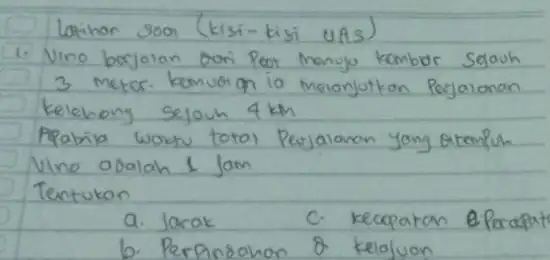 Latihan soal (kisi-kisi UAS)
1. Vino berjalan dari Pear menuju kamboa sejauh
3 meter. kemudian ia melanjutkan Perjalanan
kelebong sejauh 4 km
Apabila waktu total Perjalanan yang ditempuh
Vino adalah 1 Jam
Tentukan
a. Jarak c. kecepatan e Percepat
b. Perpindahan d kelajuan